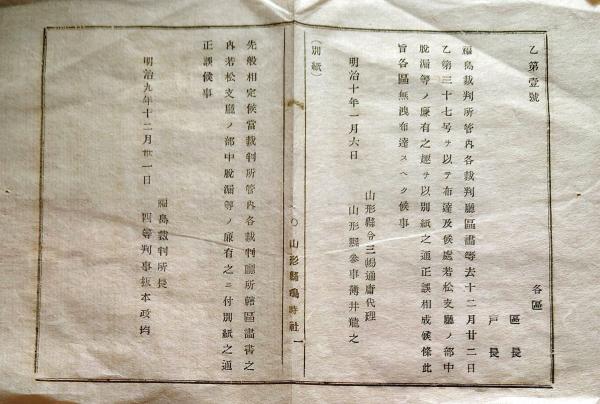 乙第壹號
各區
區長
戸長
福島裁判所管內各裁判廳區畫等去十二月廿二日
乙第三十七号ヲ以テ布達及候處若松支廳ノ部中
脫漏等ノ廉有之趣ヲ以別紙之通正誤相成候條此
旨各區無洩布達スヘク候事
明治十年一月六日
山形縣令三島通庸代理
山形縣參事薄井龍之
(別紙)
○山形縣鳴時社一
先般相定候當裁判所管內各裁判廳所轄區畫書之
內若松支廳ノ部中脫漏等ノ廉有之ニ付別紙之通
正誤候事
明治九年十二月廿一日
福島裁判所長
四等判事坂本政均